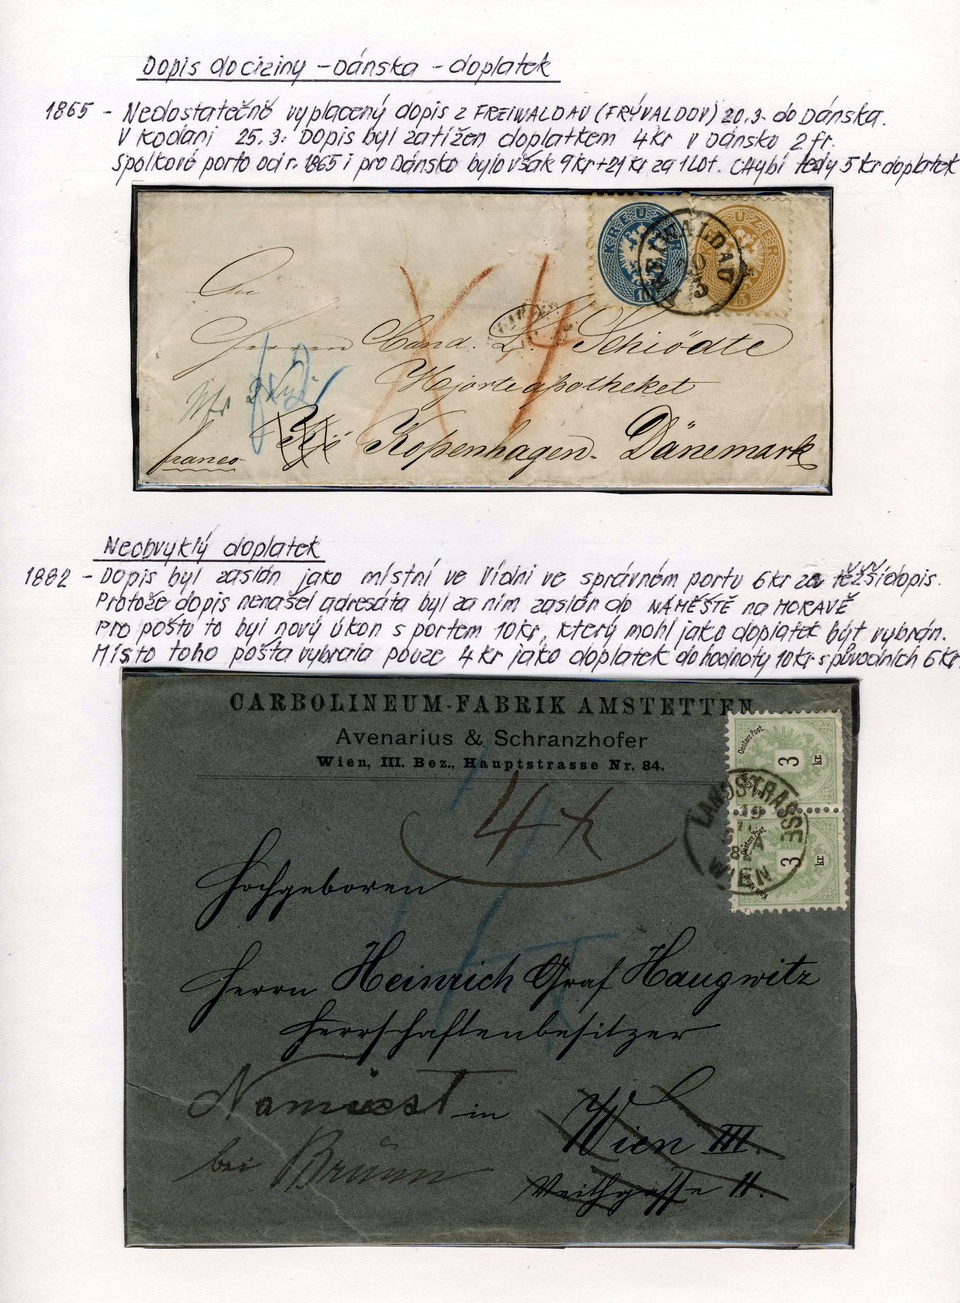 Dopis do ciziny - Dánska - doplatek
1865 - Nedostatečně vyplacený dopis z FREIWALDAU (FRÝVALDOV) 20.3. do Dánska.
V Kodani 25.3. Dopis byl zatížen doplatkem 4kr v Dánsko 2 fr.
Spolkové porto od r. 1865 i pro Dánsko bylo však 9kr+21kr za 1 Lot. Chybí tedy 5 kr doplatek
KREUZER
10
KREUZER
FREIWALDAU
20
3
An
4
Herrn Cand. L. Schiödte
Hjorteapotheket
franco
Kopenhagen. Dänemark
Neobvyklý doplatek
1882 - Dopis byl zaslán jako místní ve Vídni ve správném portu 6kr za těžší dopis.
Protože dopis nenašel adresáta byl za ním zaslán do NÁMĚŠTĚ na MORAVĚ
Pro poštu to byl nový úkon s portem 10kr, který mohl jako doplatek být vybrán.
Místo toho pošta vybrala pouze 4 kr jako doplatek do hodnoty 10kr s původních 6kr
CARBOLINEUM-FABRIK AMSTETTEN
Avenarius & Schranzhofer
Wien, III. Bez., Hauptstrasse Nr. 84.
3 kr
3 kr
LANDSTRASSE
WIEN
4x
Hochgeboren
Herrn Heinrich Graf Haugwitz
Herrschaftenbesitzer
Namiest in Wien III.
bei Brünn
Veithgasse 11.